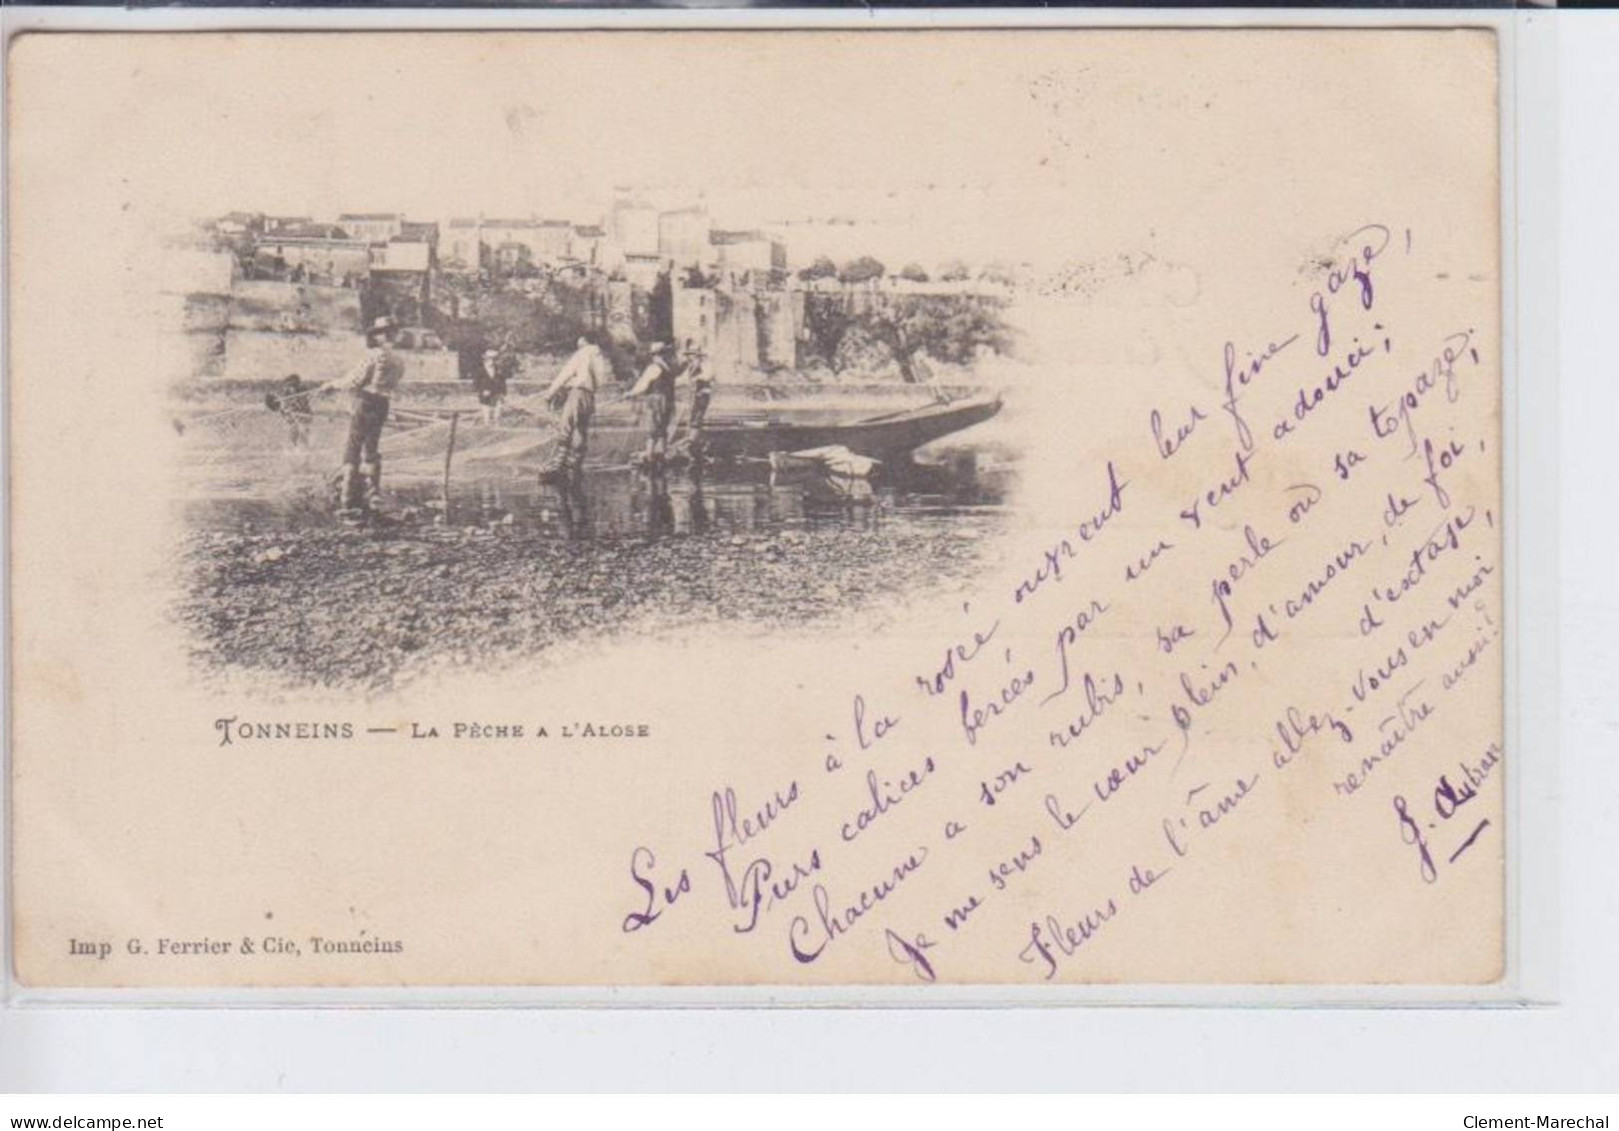 TONNEINS — LA PÈCHE A L'ALOSE
Imp G. Ferrier & Cie, Tonneins
Les fleurs à la rosée ouvrent leur fine gaze,
Purs calices bercés par un vent adouci;
Chacune a son rubis, sa perle ou sa topaze;
Je me sens le cœur plein, d'amour, de foi,
d'extase,
Fleurs de l'âme allez-vous en moi
renaître aussi?
J. Autran
delcampe.net
Clement-Marechal